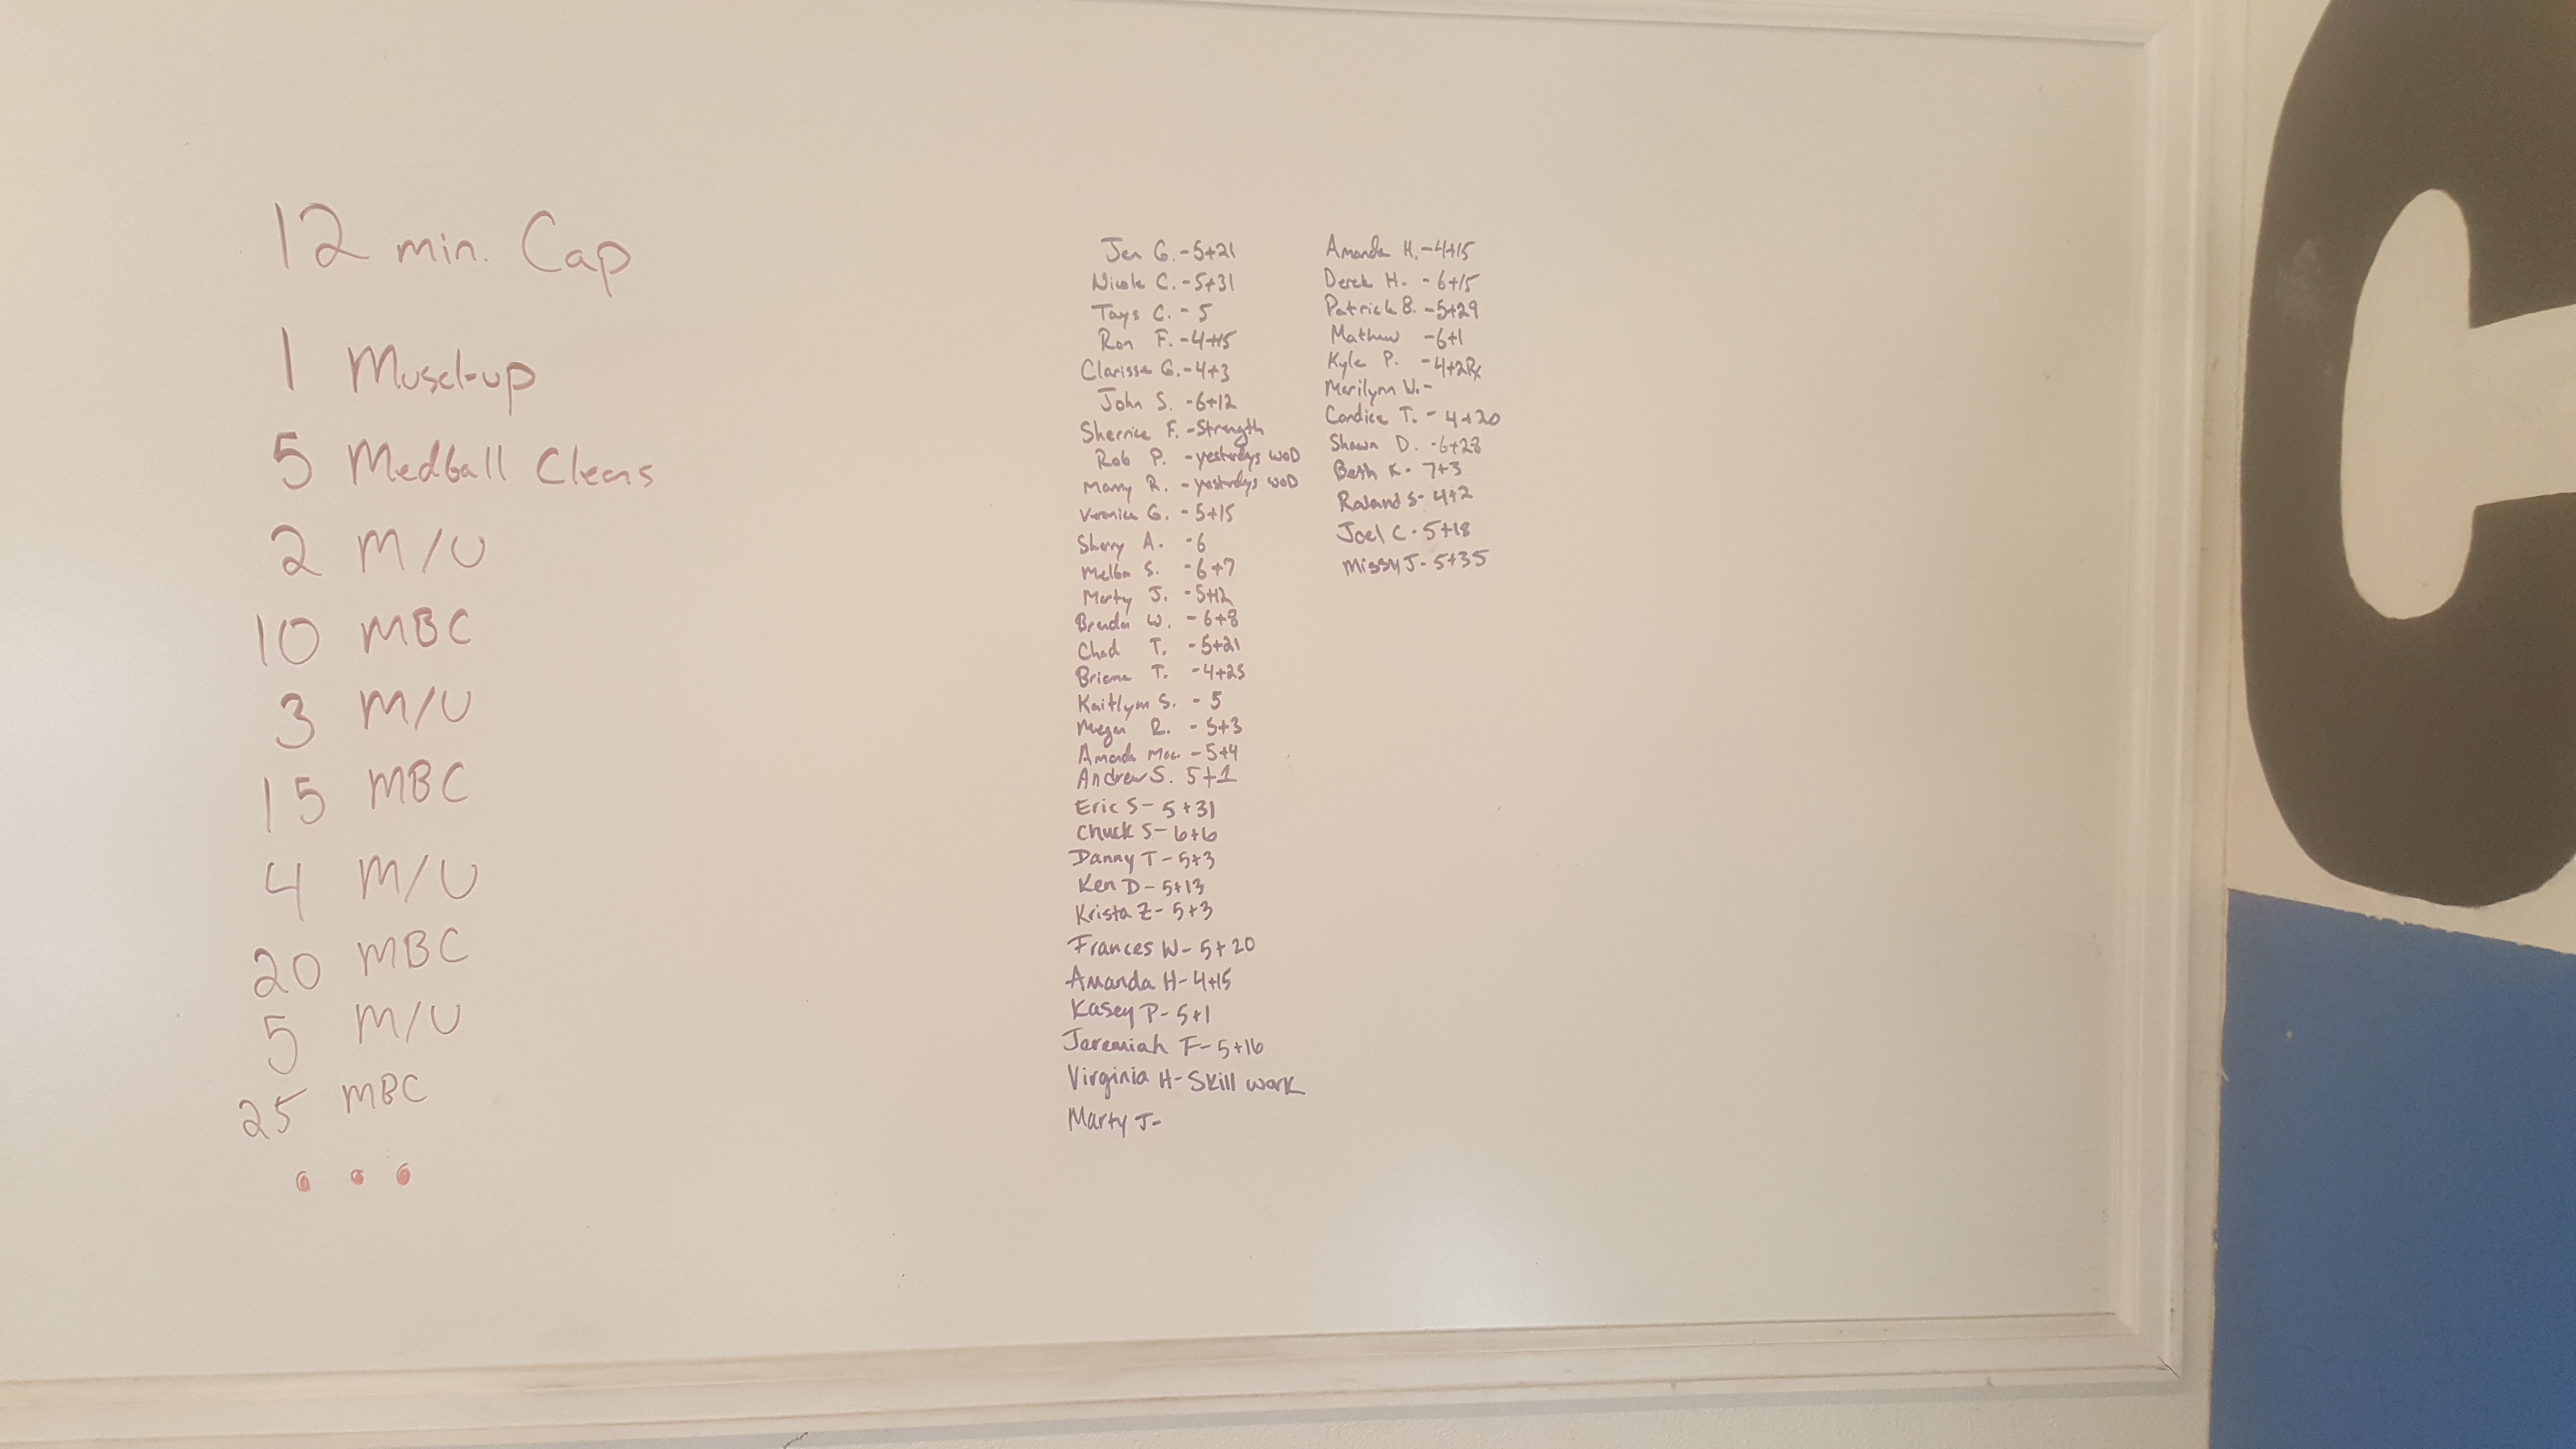 12 min. Cap
1 Muscl-up
5 Medball Cleans
2 M/U
10 MBC
3 M/U
15 MBC
4 M/U
20 MBC
5 M/U
25 MBC
...
Jen G. - 5+21
Nicole C. - 5+31
Tays C. - 5
Ron F. - 4+15
Clarissa G. - 4+3
John S. - 6+12
Sherrice F. - Strength
Rob P. - yesterdays WOD
Manny R. - yesterdays WOD
Veronica G. - 5+15
Sherry A. - 6
Melba S. - 6+7
Marty J. - 5+12
Brenda W. - 6+8
Chad T. - 5+21
Briana T. - 4+25
Kaitlyn S. - 5
Megan R. - 5+3
Amanda Mac. - 5+4
Andrew S. 5+1
Eric S - 5+31
Chuck S - 6+6
Danny T - 5+3
Ken D - 5+13
Krista Z - 5+3
Frances W - 5+20
Amanda H - 4+15
Kasey P - 5+1
Jeremiah F - 5+16
Virginia H - Skill work
Marty J -
Amanda H. - 4+15
Derek H. - 6+15
Patrick B. - 5+29
Mathew - 6+1
Kyle P. - 4+2Rx
Marilynn W. -
Candice T. - 4+20
Shawn D. - 6+28
Beth K - 7+3
Roland S - 4+2
Joel C - 5+18
Missy J - 5+35
C